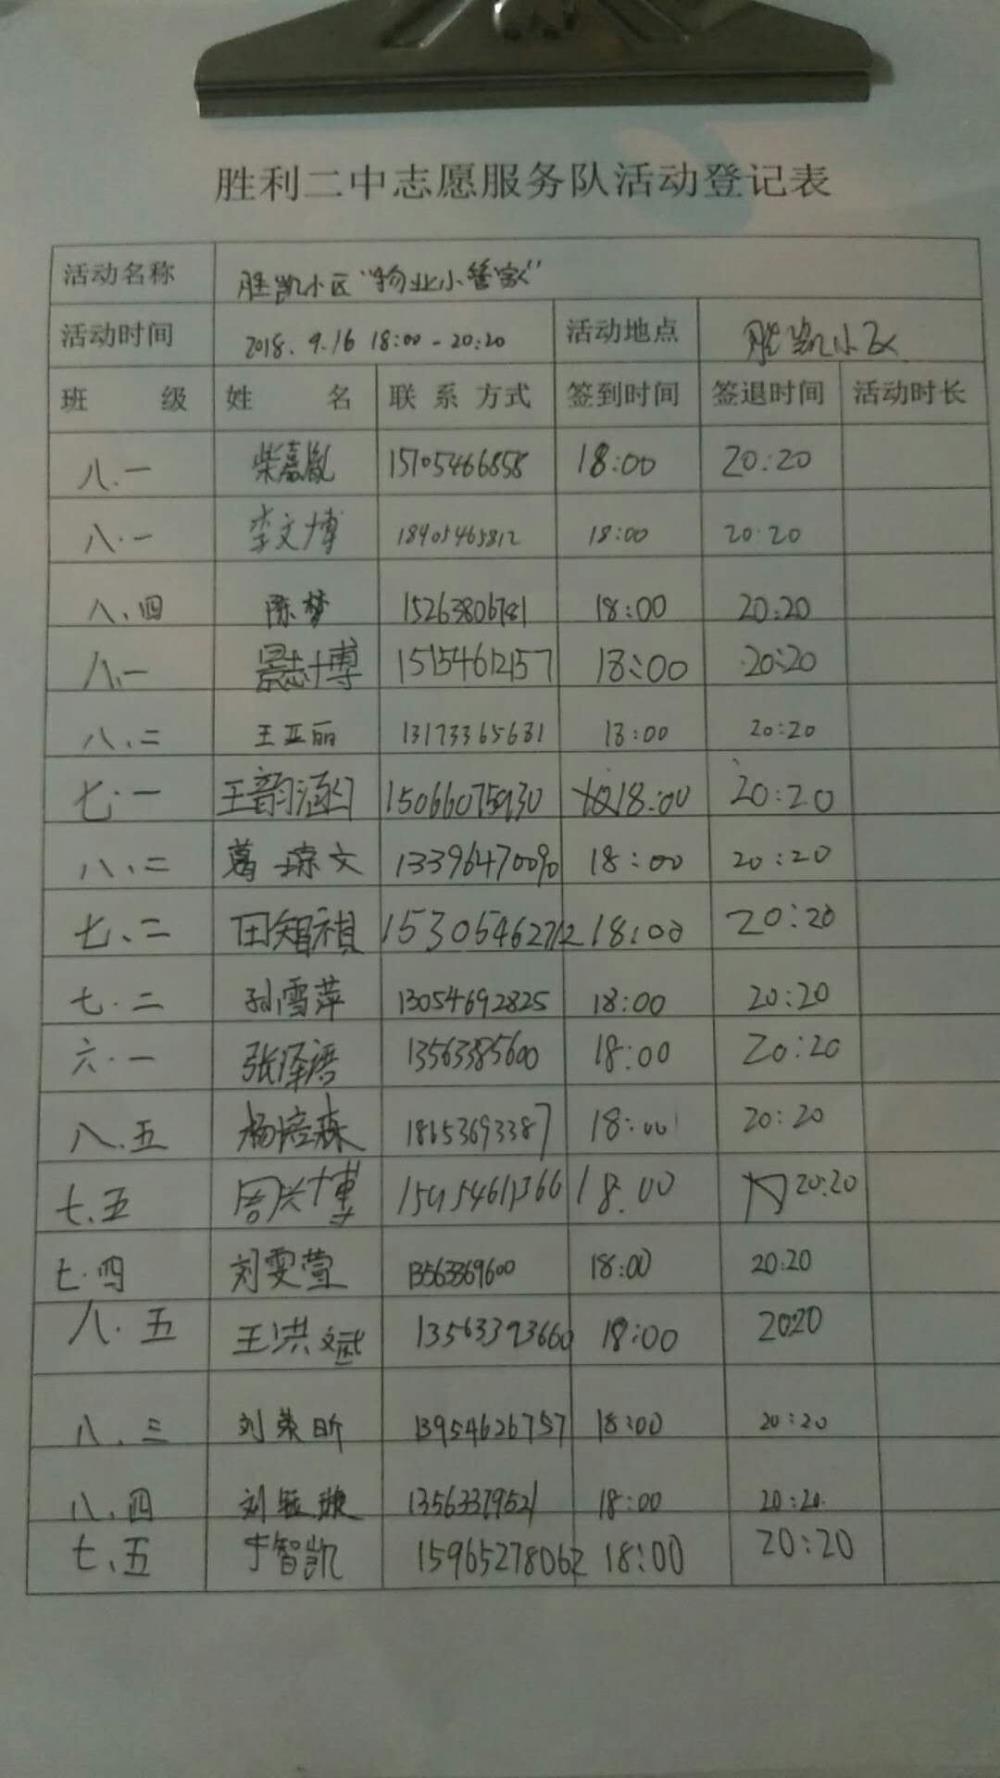 胜利二中志愿服务队活动登记表
活动名称 胜凯小区“物业小管家”
活动时间 2018.9.16 18:00-20:20 活动地点 胜凯小区
班 级 姓 名 联 系 方式 签到时间 签退时间 活动时长
八.一 柴嘉胤 15105466858 18:00 20:20
八.一 李文博 18405465812 18:00 20:20
八、四 陈梦 15263806781 18:00 20:20
八、一 志博 15154612157 18:00 20:20
八、二 王亚丽 13173365681 18:00 20:20
七.一 王韵涵 15066075930 18:00 20:20
八、二 葛琼文 13396470090 18:00 20:20
七、二 田智祺 15305462712 18:00 20:20
七.二 孙雪萍 13054692825 18:00 20:20
六.一 张泽语 13563385600 18:00 20:20
八.五 杨培森 18653693387 18:00 20:20
七、五 周兴博 18:00 20:20
七.四 刘雯萱 13563369600 18:00 20:20
八.五 王洪斌 13563393660 18:00 2020
八、三 刘荣昕 13954626757 18:00 20:20
八、四 刘 18:00 20:20
七、五 于智凯 15965278062 18:00 20:20